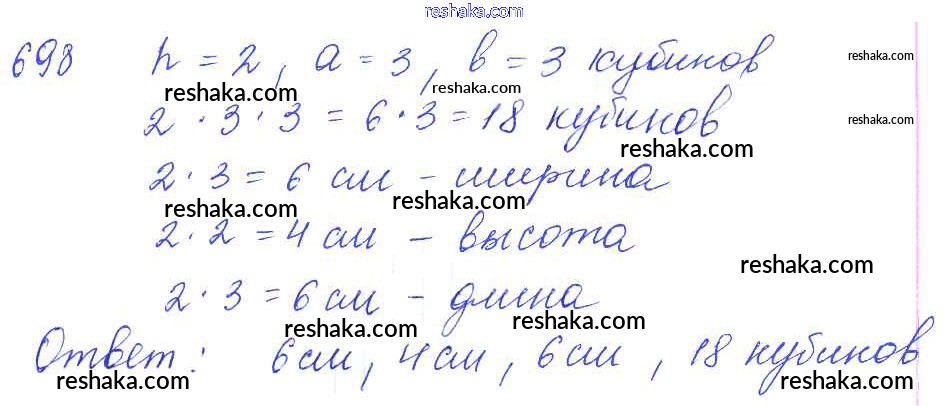 reshaka.com
698 h = 2, a = 3, в = 3 кубиков
reshaka.com
reshaka.com reshaka.com
2 · 3 · 3 = 6 · 3 = 18 кубиков
reshaka.com
reshaka.com
2 · 3 = 6 см - ширина
reshaka.com reshaka.com
2 · 2 = 4 см - высота
reshaka.com
2 · 3 = 6 см - длина
reshaka.com reshaka.com
Ответ: 6 см, 4 см, 6 см, 18 кубиков
reshaka.com reshaka.com